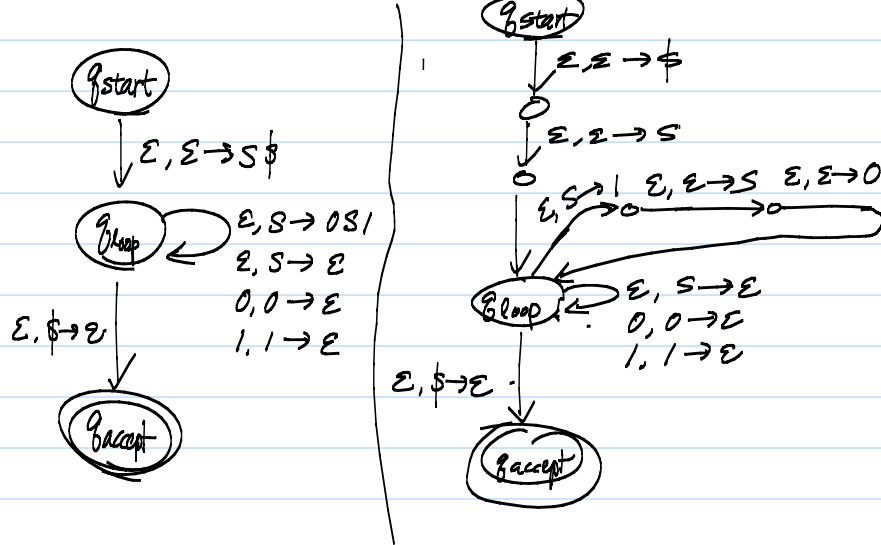 qstart
ε, ε → S$
qloop
ε, S → 0S1
ε, S → ε
0, 0 → ε
1, 1 → ε
ε, $ → ε
qaccept
qstart
ε, ε → $
ε, ε → S
ε, S → 1
ε, ε → S
ε, ε → 0
qloop
ε, S → ε
0, 0 → ε
1, 1 → ε
ε, $ → ε
qaccept